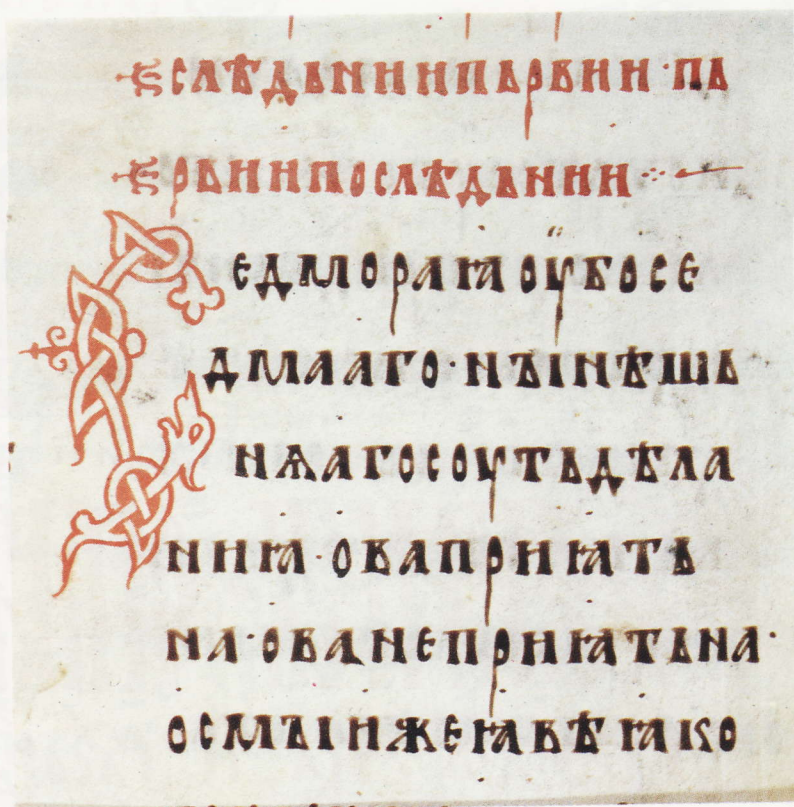 слѣдьниипьрвии·пь
рвиипослѣдьнии⁘
Седмораꙗоубосе
дмааго·нъінѣшь
нѧагосоутьдѣла
ниꙗ·оваприꙗть
на·ованеприꙗтьна·
осмъіижеꙗвѣꙗко